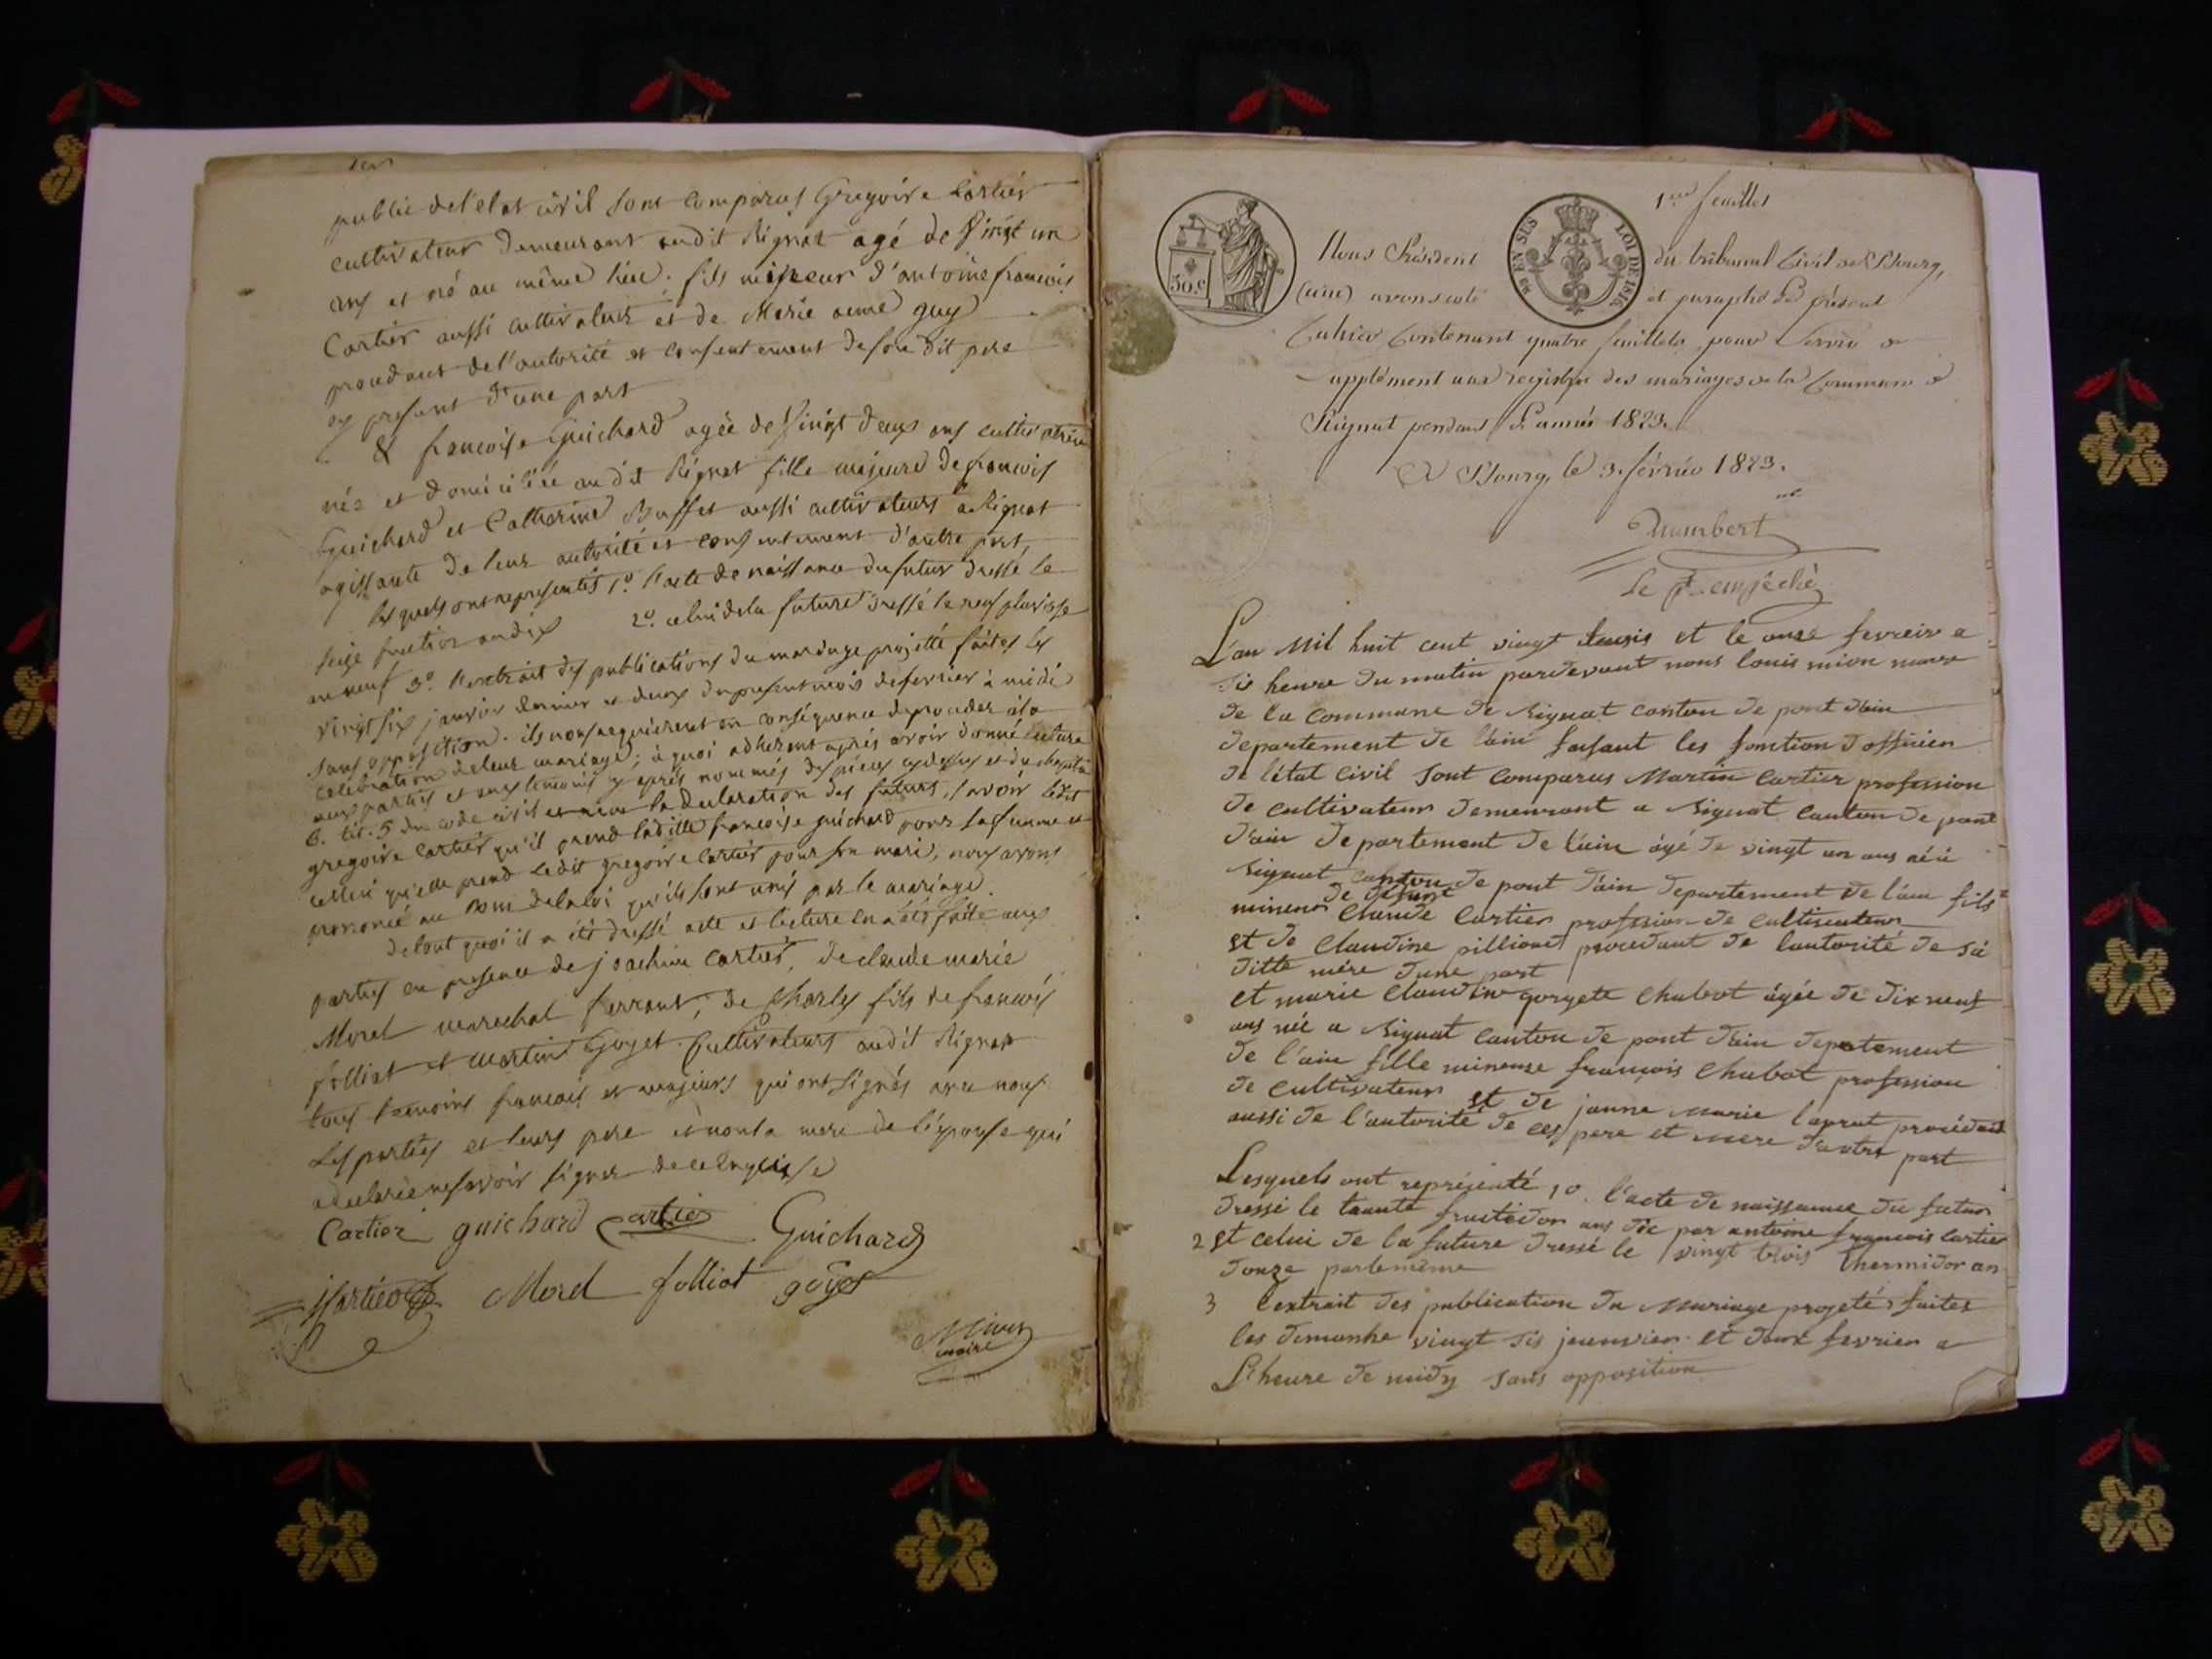 public de l'etat civil sont comparus Gregoire Cartier
cultivateur demeurant audit Rignat agé de Vingt un
ans et né au même lieu, fils mineur d'antoine francois
Cartier aussi cultivateur et de Marie anne guy
procedant de l'autorité et consentement de son dit pere
cy present d'une part
& francoise Guichard agée de Vingt deux ans cultivatrice
née et domiciliée au dit Rignat fille majeure de francois
Guichard et Catherine Buffet aussi cultivateurs a Rignat
agissante de leur autorité et consentement d'autre part,
lesquels ont representés 1º. l'acte de naissance du futur dressé le
seize fructidor an dix 2º. celui de la future dressé le neuf pluviose
an neuf 3º. l'extrait des publications du mariage projetté faites les
vingt six janvier dernier et deux du present mois de fevrier à midi
sans opposition. ils nous requierent en conséquence de proceder à la
celebration de leur mariage, à quoi adherant après avoir donné lecture
aux parties et aux temoins cy après nommés des pieces cy dessus et du chapitre
6. tit. 5 du code civil et reçu la declaration des futurs, savoir ledit
gregoire Cartier qu'il prend ladite francoise guichard pour sa femme et
celle ci qu'elle prend ledit gregoire Cartier pour son mari, nous avons
prononcé au Nom de la loi qu'ils sont unis par le mariage.
de tout quoi il a été dressé acte et lecture en a été faite aux
parties en presence de joachim Cartier, de claude marie
Morel marechal ferrant, de Charles fils de francois
folliat et martin Goyet Cultivateurs audit Rignat
tous temoins francais et majeurs qui ont signés avec nous
les parties et leurs pere et non la mere de l'épouse qui
a declarée ne savoir signer de ce enquise
Cartier guichard Cartier Guichard
Cartier Morel folliat goyet
Mion
maire
1er feuillet
50 c
EN SUS LOI DE 1816
Nous Président du tribunal Civil de Bourg,
(ain) avons coté et paraphé le présent
Cahier Contenant quatre feuillets pour Servir de
supplément aux registre des mariages de la Commune de
Rignat pendant l'année 1823.
A Bourg, le 3. février 1823.
Humbert
Le Pt. empêché
L'an Mil huit cent vingt trois et le onze fevreir a
dis heure du matin pardevant nous louis mion maire
de la commune de Rignat canton de pont d'ain
departement de l'ain faisant les fonction d'officier
de l'état civil sont comparus Martin Cartier profession
de cultivateur demeurant a Rignat canton de pont
d'ain departement de l'ain âgé de vingt un ans né à
Rignat canton de pont d'ain departement de l'ain fils
mineur de défunt Claude Cartier profession de cultivateur
et de Claudine pillionet procedant de l'autorité de sa
ditte mère d'une part
et marie Claudine gorgete Chabot âgée de dix neuf
ans née a Rignat canton de pont d'ain depatement
de l'ain fille mineuse françois Chabot profession
de cultivateur et de janne Marie laprat procédant
aussi de l'autorité de ces pere et mere d'autre part
Lesquels ont représenté 1º. l'acte de naissance du futur
dressé le trante fructidor ans dix par antoine françois Cartier
2 et celui de la future dressé le vingt trois thermidor an
douze parlemême
3 l'extrait des publication du Mariage projeté faites
les dimanhe vingt sis jeanvier et deux fevrier a
L'heure de midy sans opposition